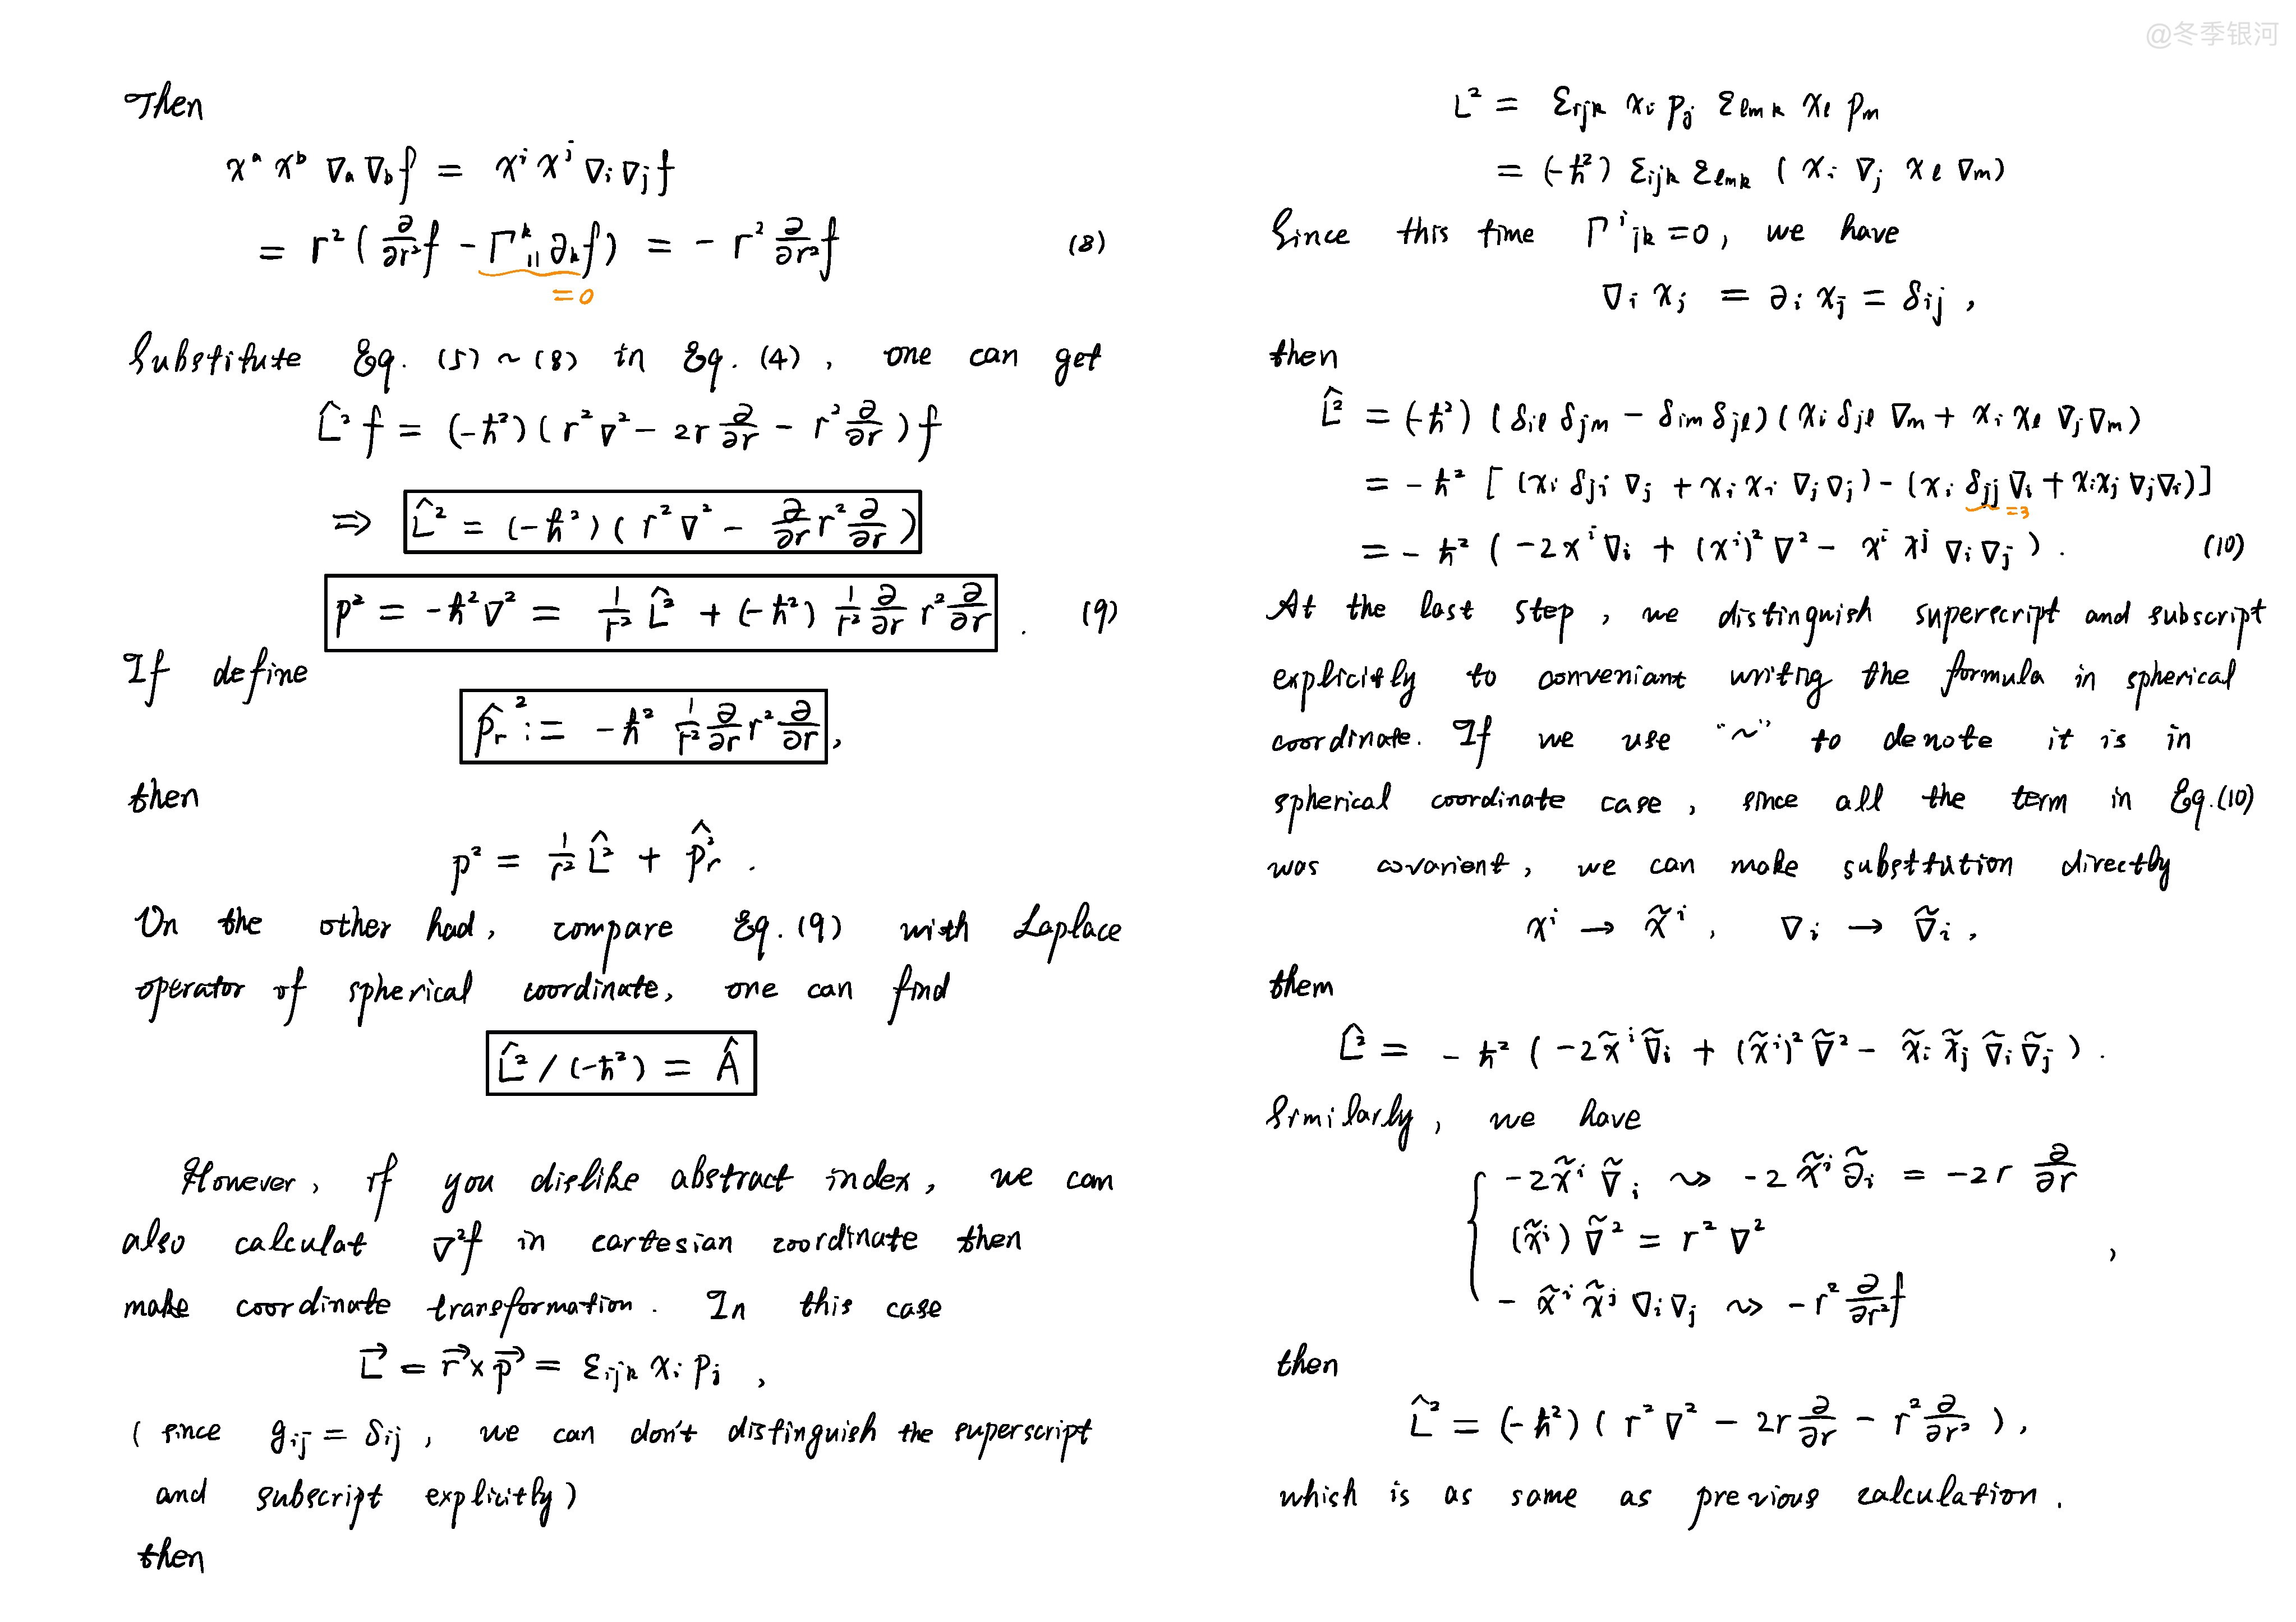 @冬季银河
Then
xᵃ xᵇ ∇ₐ ∇_b f = xⁱ xʲ ∇ᵢ ∇ⱼ f
= r² ( ∂/∂r² f − Γᵏ₁₁ ∂ₖ f ) = − r² ∂/∂r² f (8)
= 0
Substitute Eq. (5) ~ (8) in Eq. (4), one can get
L̂² f = (−ħ²) ( r² ∇² − 2r ∂/∂r − r² ∂/∂r ) f
⇒ L̂² = (−ħ²) ( r² ∇² − ∂/∂r r² ∂/∂r )
p² = −ħ² ∇² = 1/r² L̂² + (−ħ²) 1/r² ∂/∂r r² ∂/∂r . (9)
If define
p̂ᵣ² := −ħ² 1/r² ∂/∂r r² ∂/∂r ,
then
p² = 1/r² L̂² + p̂ᵣ² .
On the other had, compare Eq. (9) with Laplace
operator of spherical coordinate, one can find
L̂² / (−ħ²) = Â
However, if you dislike abstract index, we can
also calculat ∇²f in cartesian coordinate then
make coordinate transformation. In this case
L⃗ = r⃗ × p⃗ = εᵢⱼₖ xᵢ pⱼ ,
( since gᵢⱼ = δᵢⱼ , we can don't distinguish the superscript
and subscript explicitly )
then
L² = εᵢⱼₖ xᵢ pⱼ εₗₘₖ xₗ pₘ
= (−ħ²) εᵢⱼₖ εₗₘₖ ( xᵢ ∇ⱼ xₗ ∇ₘ )
Since this time Γⁱⱼₖ = 0 , we have
∇ᵢ xⱼ = ∂ᵢ xⱼ = δᵢⱼ ,
then
L̂² = (−ħ²) ( δᵢₗ δⱼₘ − δᵢₘ δⱼₗ ) ( xᵢ δⱼₗ ∇ₘ + xᵢ xₗ ∇ⱼ ∇ₘ )
= − ħ² [ ( xᵢ δⱼᵢ ∇ⱼ + xᵢ xᵢ ∇ⱼ ∇ⱼ ) − ( xᵢ δⱼⱼ ∇ᵢ + xᵢ xⱼ ∇ⱼ ∇ᵢ ) ]
=3
= − ħ² ( −2 xⁱ ∇ᵢ + (xⁱ)² ∇² − xⁱ xʲ ∇ᵢ ∇ⱼ ) . (10)
At the last step, we distinguish superscript and subscript
explicitly to conveniant writing the formula in spherical
coordinate. If we use "~" to denote it is in
spherical coordinate case, since all the term in Eq.(10)
was covarient, we can make substitution directly
xⁱ → x̃ⁱ , ∇ᵢ → ∇̃ᵢ ,
them
L̂² = − ħ² ( −2 x̃ⁱ ∇̃ᵢ + (x̃ⁱ)² ∇̃² − x̃ᵢ x̃ⱼ ∇̃ᵢ ∇̃ⱼ ) .
Similarly, we have
−2 x̃ⁱ ∇̃ᵢ ⇝ −2 x̃ⁱ ∂̃ᵢ = −2 r ∂/∂r
(x̃ⁱ) ∇̃² = r² ∇² ,
− x̃ⁱ x̃ʲ ∇ᵢ ∇ⱼ ⇝ − r² ∂/∂r² f
then
L̂² = (−ħ²) ( r² ∇² − 2r ∂/∂r − r² ∂/∂r² ) ,
which is as same as previous calculation .